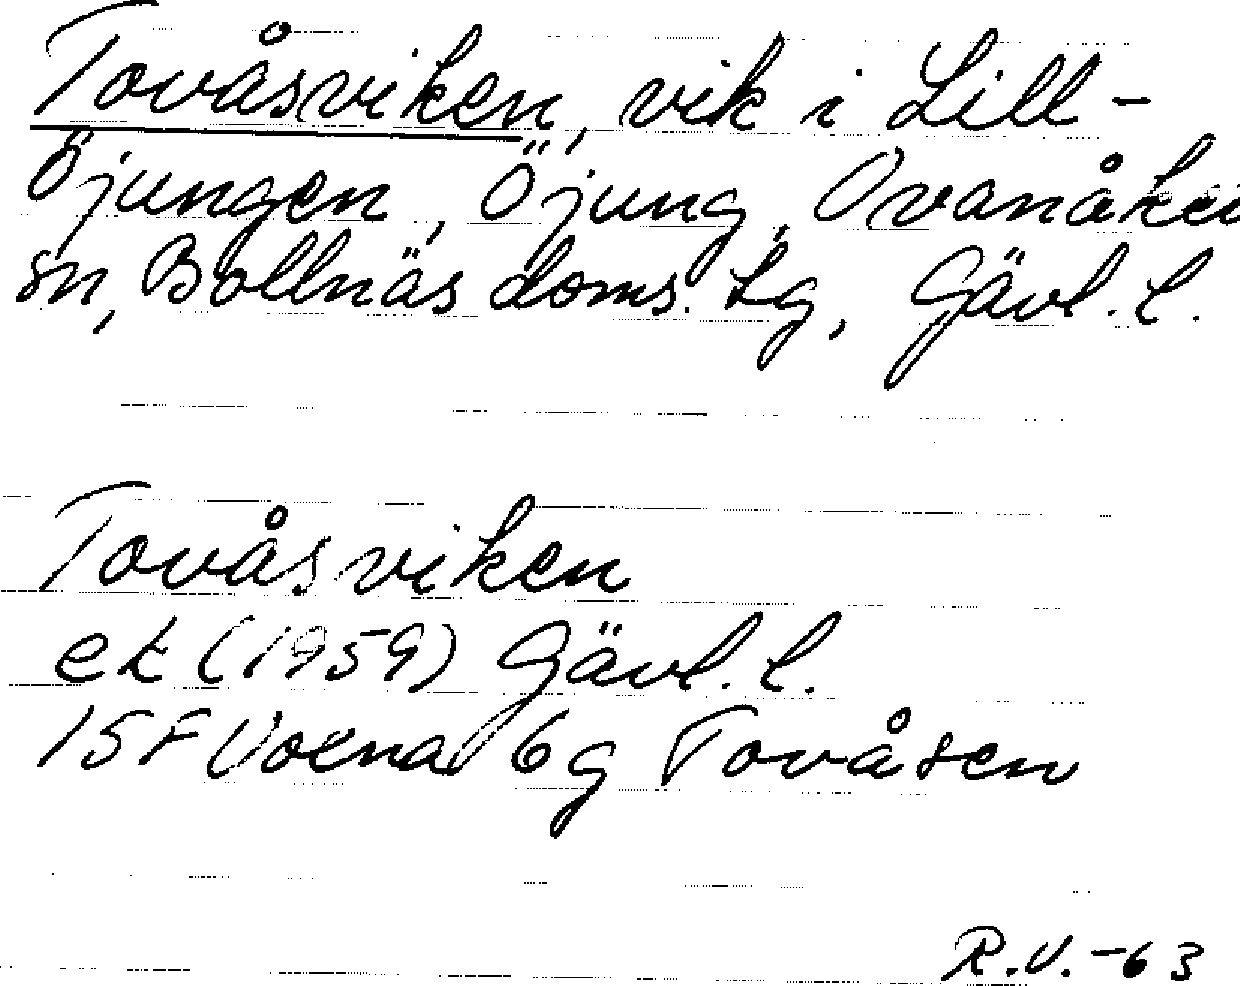 Tovåsviken, vik i Lill-
Öjungen, Öjung, Ovanåker
sn, Bollnäs doms. lg, Gävl. l.
Tovåsviken
ek (1959) Gävl. l.
15F Voxna 6g Tovåsen
R.V. -63